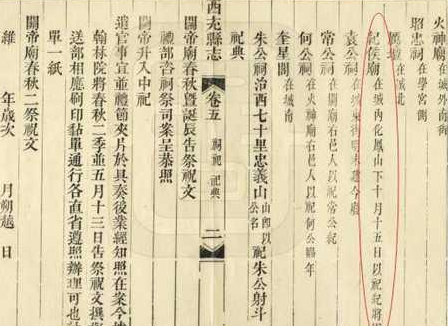 火神廟在城南街
昭忠祠在學宮側
厲壇在城北
紀侯廟在城內化鳳山下十月十五日以祀紀將
袁公祠在城東
常公祠在關廟右邑人以祀常公紀
何公祠在火神廟右邑人以祀何公臨年
奎星閣在城南
朱公祠治西七十里忠義山山郎以祀朱公射斗公名
祀典
西充縣志
卷五
祠祀 祀典
二
關帝廟春秋暨誕辰告祭祝文
禮部咨祠祭司案呈恭照
關帝升入中祀
遣官事宜並禮節夾片於具奏後業經知照在案今
翰林院將春秋二季並五月十三日告祭祝文撰
送部相應刷印黏單通行各直省遵照辦理可也
單一紙
關帝廟春秋二祭祝文
維 年歲次 月朔越 日